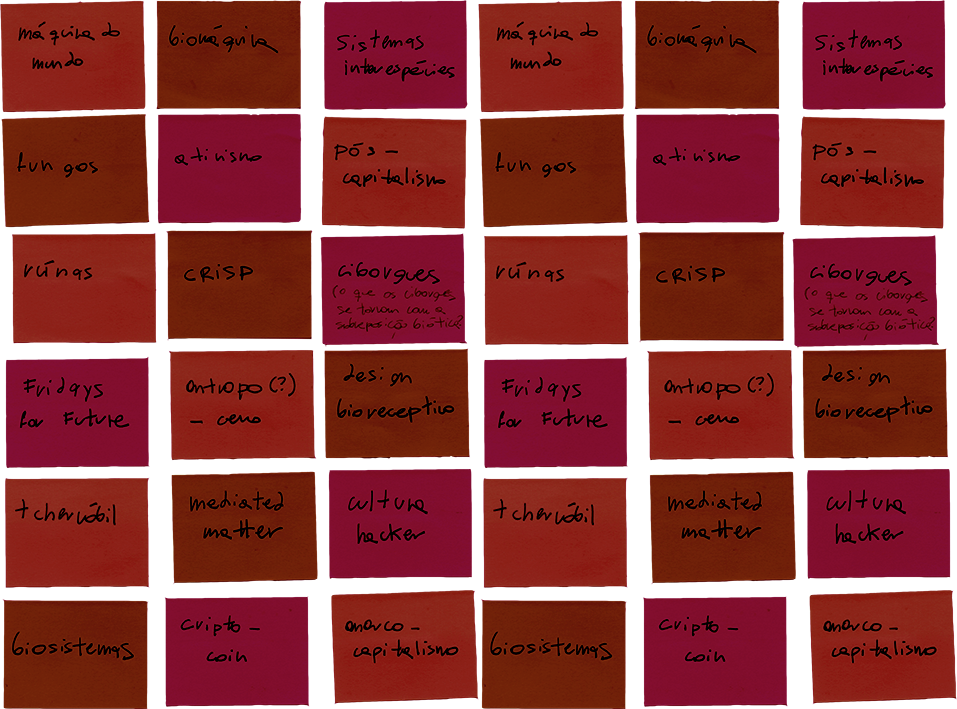 máquina do
mundo
biomáquina
Sistemas
interespécies
máquina do
mundo
biomáquina
Sistemas
interespécies
fungos
ativismo
pós-
capitalismo
fungos
ativismo
pós-
capitalismo
ruínas
CRISP
ciborgues
(o que os ciborgues
se tornam com a
sobreposição biótica?
ruínas
CRISP
ciborgues
(o que os ciborgues
se tornam com a
sobreposição biótica?
Fridays
for Future
antropo(?)
- ceno
design
bioreceptivo
Fridays
for Future
antropo(?)
- ceno
design
bioreceptivo
tchernóbil
mediated
matter
cultura
hacker
tchernóbil
mediated
matter
cultura
hacker
biosistemas
cripto-
coin
anarco-
capitalismo
biosistemas
cripto-
coin
anarco-
capitalismo